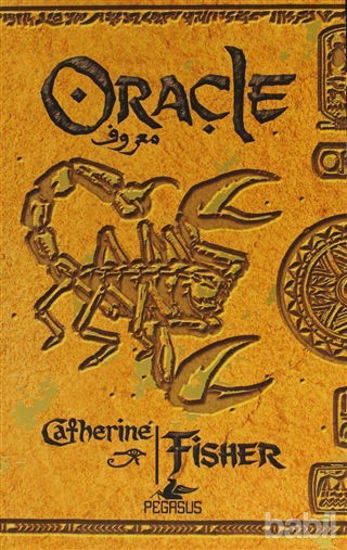 ORACLE
معروف
Catherine
FISHER
PEGASUS
babil